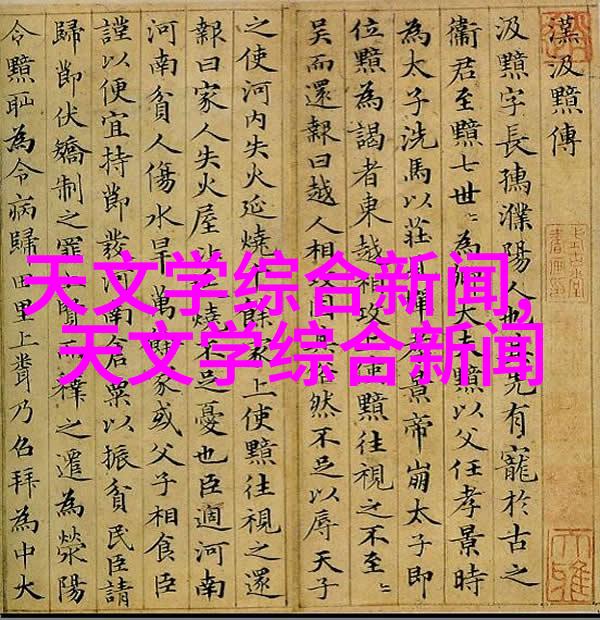 漢汲黯傳
汲黯字長孺濮陽人也其先有寵於古之
衞君至黯七世〻為卿大夫黯以父任孝景時
為太子洗馬以莊見憚孝景帝崩太子即
位黯為謁者東越相攻上使黯往視之不至〻
吳而還報曰越人相攻固其俗然不足以辱天子
之使河内失火延燒千餘家上使黯往視之還
報曰家人失火屋比延燒不足憂也臣過河南
河南貧人傷水旱萬餘家或父子相食臣
謹以便宜持節發河南倉粟以振貧民臣請
歸節伏矯制之罪上賢而釋之遷為滎陽
令黯恥為令病歸田里上聞乃召拜為中大
天文学综合新闻,
天文学综合新闻